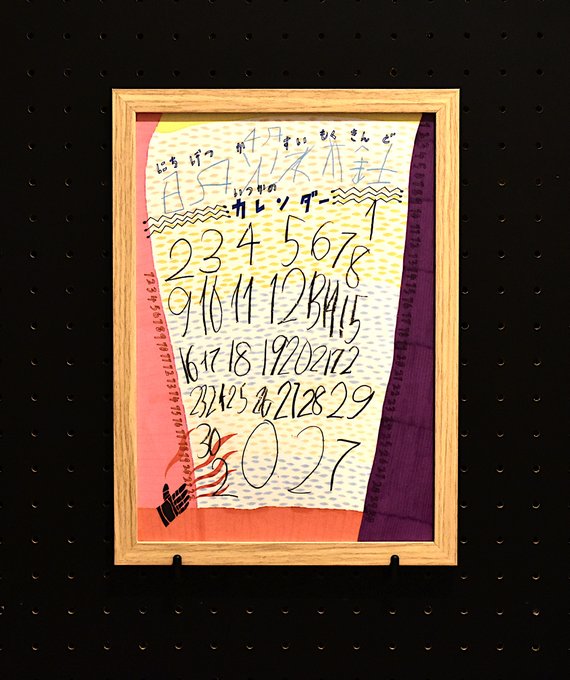 にち げつ か すい もく きん ど
日 月 火 水 木 金 土
いつかの
カレンダー
1
2 3 4 5 6 7 8
9 10 11 12 13 14 15
16 17 18 19 20 21 22
23 24 25 26 27 28 29
30
2027